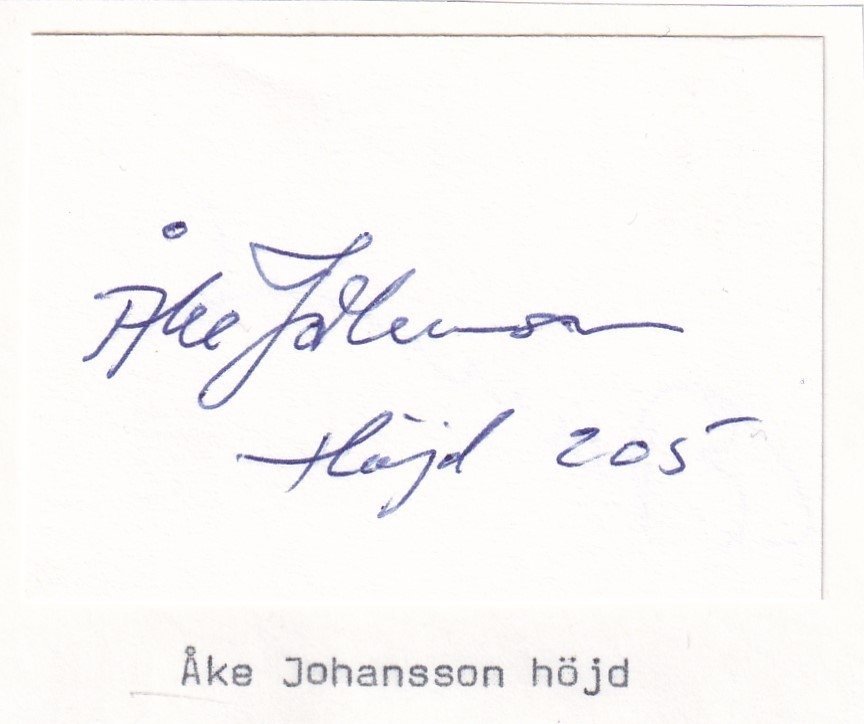 Åke Johansson
Höjd 205
Åke Johansson höjd